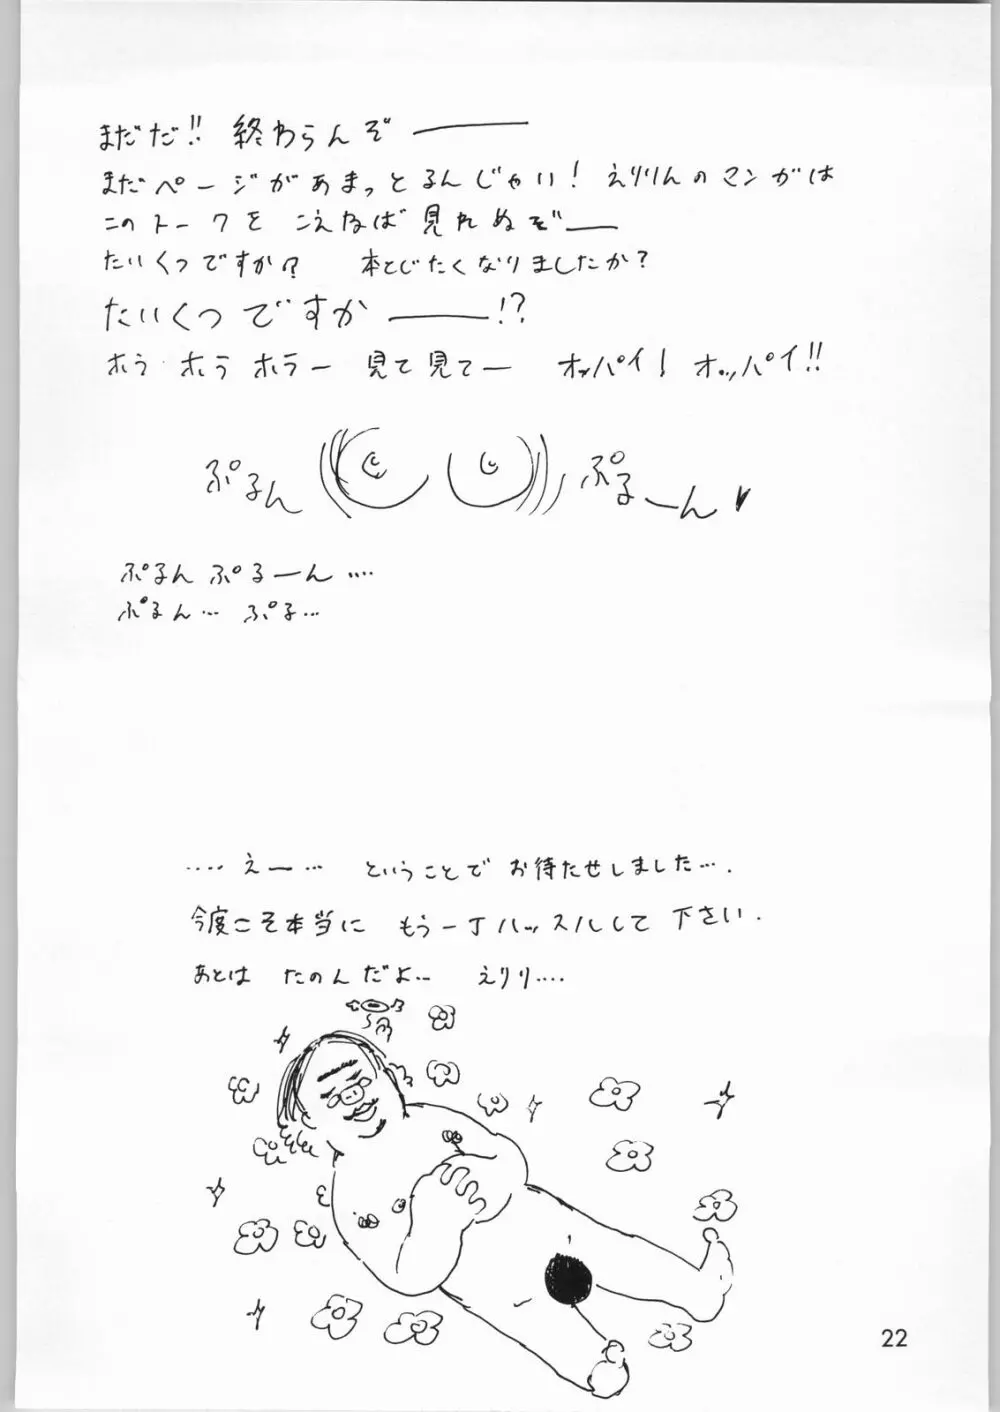 まだだ!! 終わらんぞ――
まだページがあまっとるんじゃい! えりりんのマンガは
このトークを こえねば見れぬぞ――
たいくつですか? 本とじたくなりましたか?
たいくつですか――!?
ホラ ホラ ホラー 見て見てー オッパイ! オッパイ!!
ぷるん ぷるーん♥
ぷるん ぷるーん‥‥
ぷるん… ぷる…
‥‥えー… ということで お待たせしました….
今度こそ本当に もう一丁ハッスルして下さい.
あとは たのんだよ… えりり‥‥
22